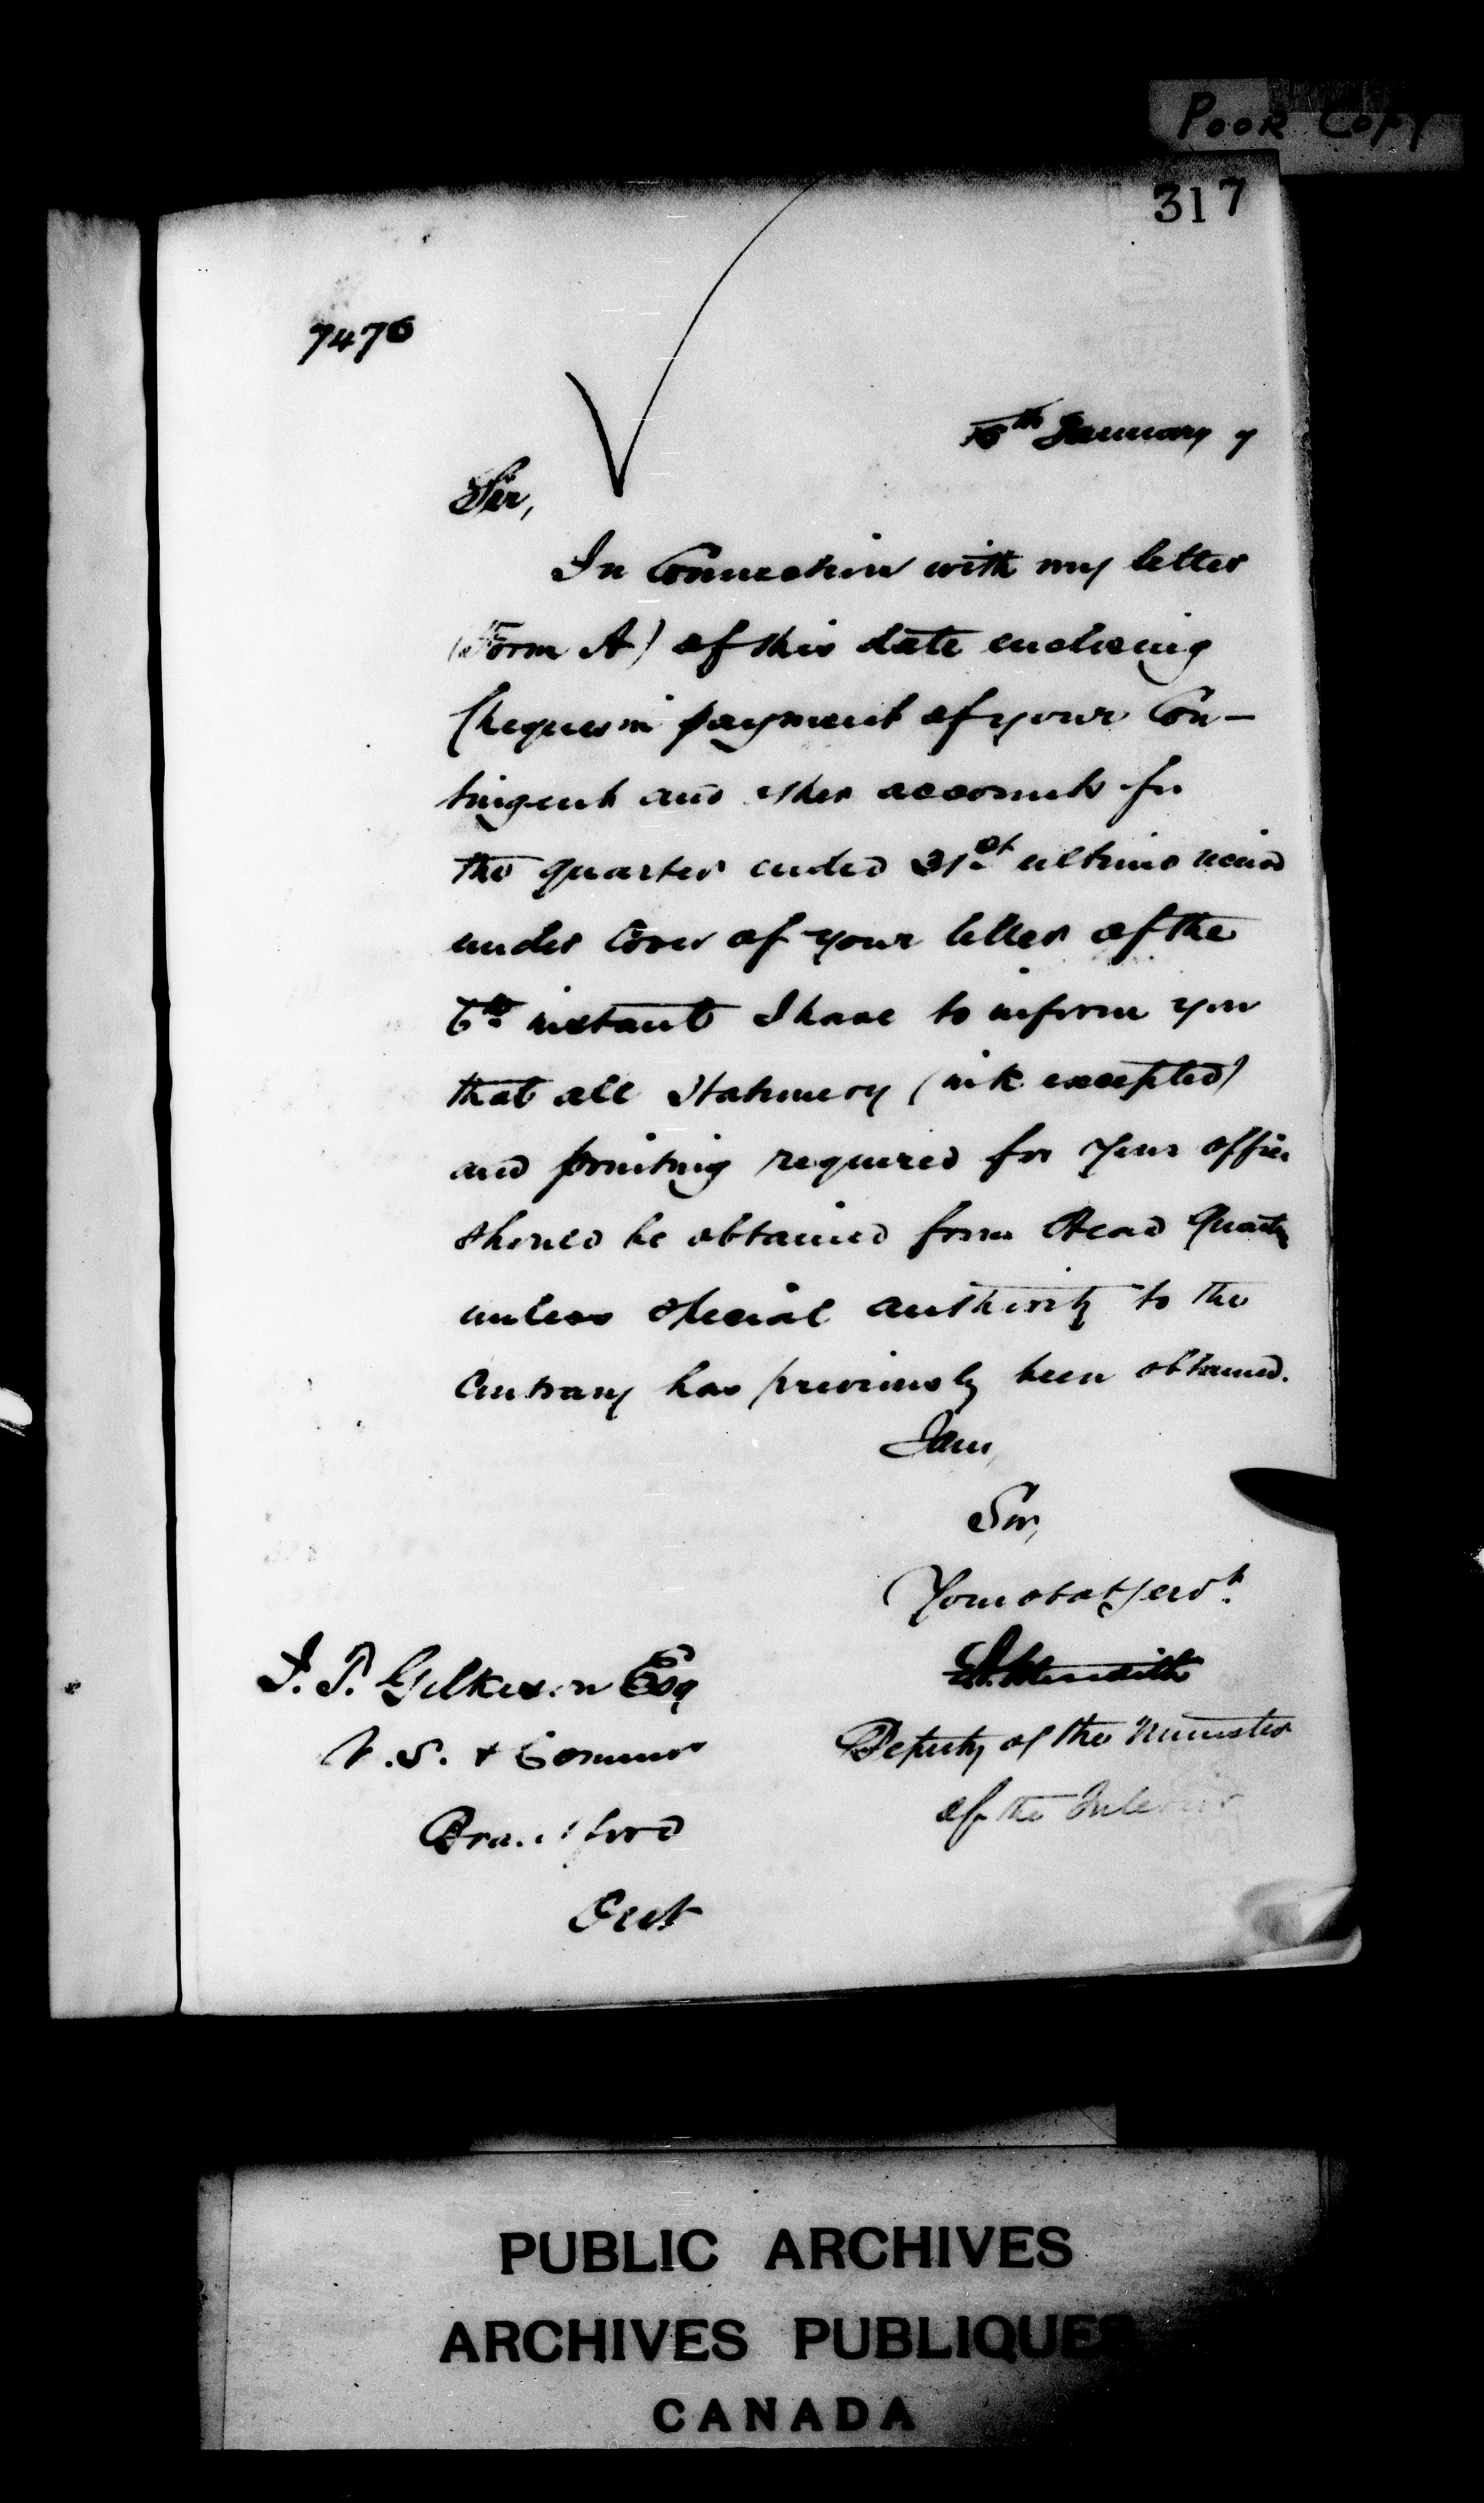 POOR COPY
317
7476
th January 7
Sir,
In Connection with my letter
(Form A) of this date enclosing
Cheques in payment of your Con-
tingent and other accounts for
the quarter ended 31st ultimo recived
under Cover of your letter of the
6th instant I have to inform you
that all Stationery (ink excepted)
and printing required for your office
should be obtained from Head Quarters
unless special authority to the
Contrary has previously been obtained.
I am,
Sir,
Your obdt Servt.
J. T. Gilkison Esq
E. A. Meredith
V.S. & Commr
Deputy of the Minister
of the Interior
Brantford
Ont
PUBLIC ARCHIVES
ARCHIVES PUBLIQUES
CANADA